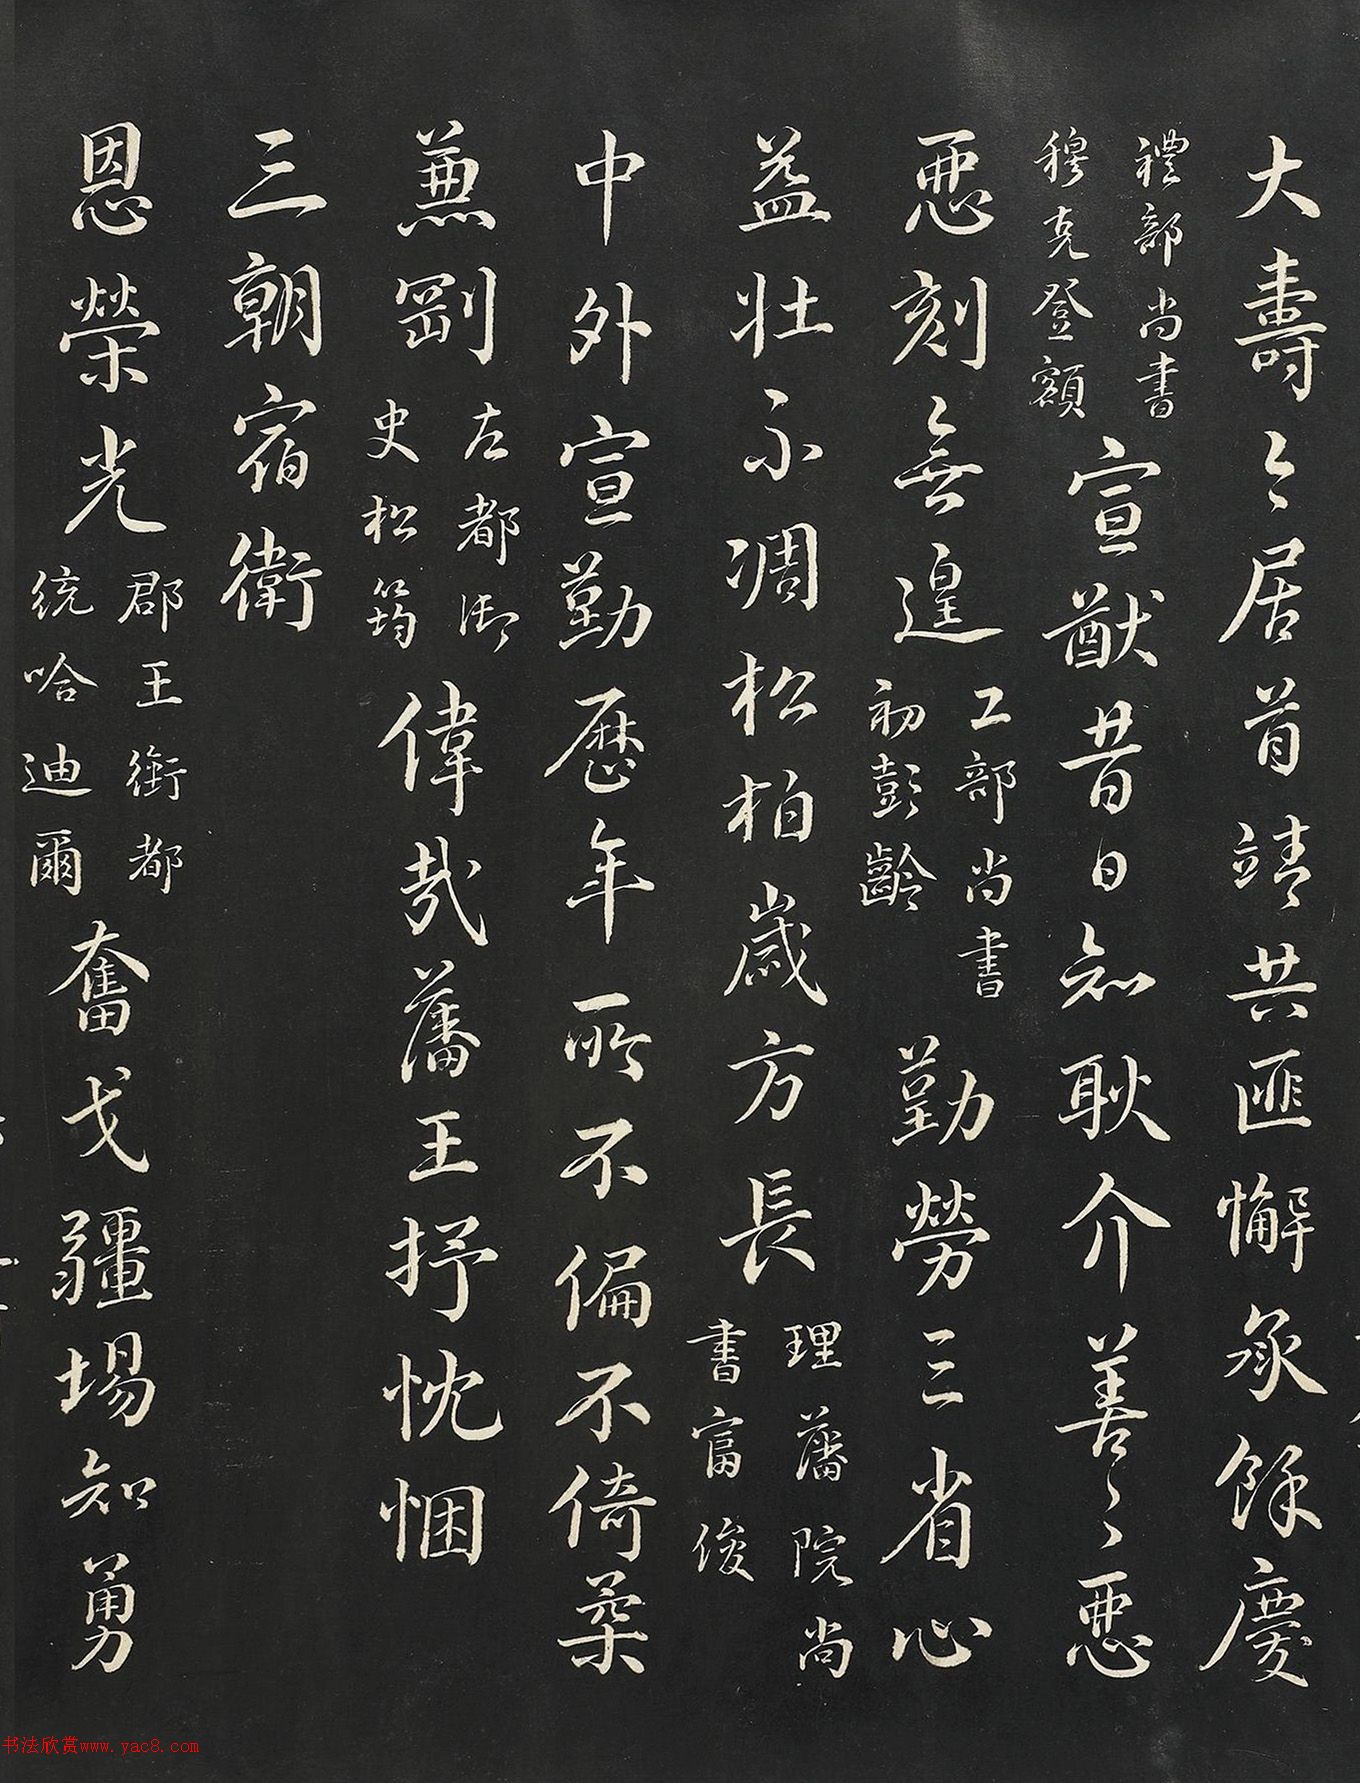 大壽居首靖共匪懈承餘慶
禮部尚書
穆克登額
宣猷昔日知耿介善〻惡
惡刻無遑
工部尚書
初彭齡
勤勞三省心
益壯不凋松柏歲方長
理藩院尚
書富俊
中外宣勤歷年所不偏不倚柔
兼剛
左都御
史松筠
偉哉藩王抒忱悃
三朝宿衛
恩榮光
郡王銜都
統哈迪爾
奮戈疆場知勇
书法欣赏www.yac8.com